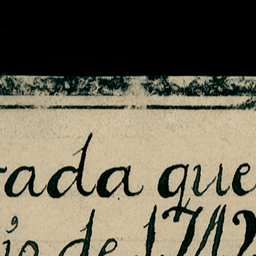 rada que
io de 1712